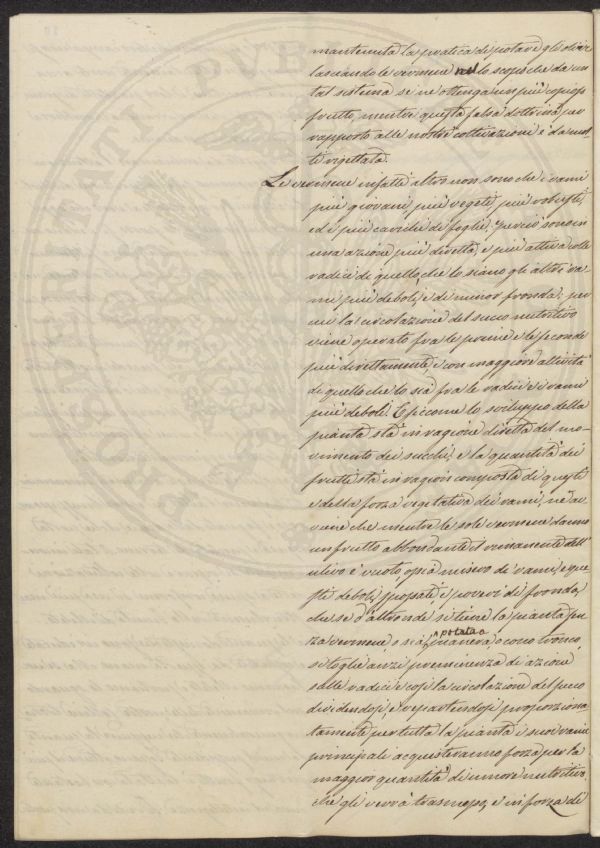 mantenuta la pratica di potare gli olivi
lasciando le vermene nello scopo che da un
tal sistema se ne ottenga un più copioso
frutto, mentre questa falsa dottrina per
rapporto alle nostre coltivazioni è da mol-
ti rigettata.
Le vermene infatti altro non sono che i rami
più giovani, più vegeti, più robusti,
ed i più carichi di foglie. Perciò sono in
una azione più diretta, e più attiva colle
radici di quello che lo siano gli altri ra-
mi più deboli, e di minor fronda; per
cui la circolazione del succo nutritivo
viene operato fra le prime e le seconde
più direttamente e con maggiore attività
di quello che lo sia fra le radici e i rami
più deboli. E siccome lo sviluppo della
pianta stà in ragione diretta del mo-
vimento dei succhi, e la quantità dei
frutti stà in ragion composta di questi
e della forza vegetativa dei rami, ne av-
viene che mentre le sole vermene danno
un frutto abbondante il rimanente dell'
ulivo è vuoto ossia misero di rami, e que-
sti deboli, spossati, e poveri di fronda,
che se d'altronde si tiene la pianta sen-
za vermene, o sia potata a maniera o cono tronco,
si toglie anzi preminenza di azione
sulle radici e così la circolazione del succo
dividendosi, e repartendosi proporziona-
tamente per tutta la pianta i suoi rami
principali acquisteranno forza per la
maggior quantità di umore nutritivo,
che gli verrà trasmesso, e in forza di